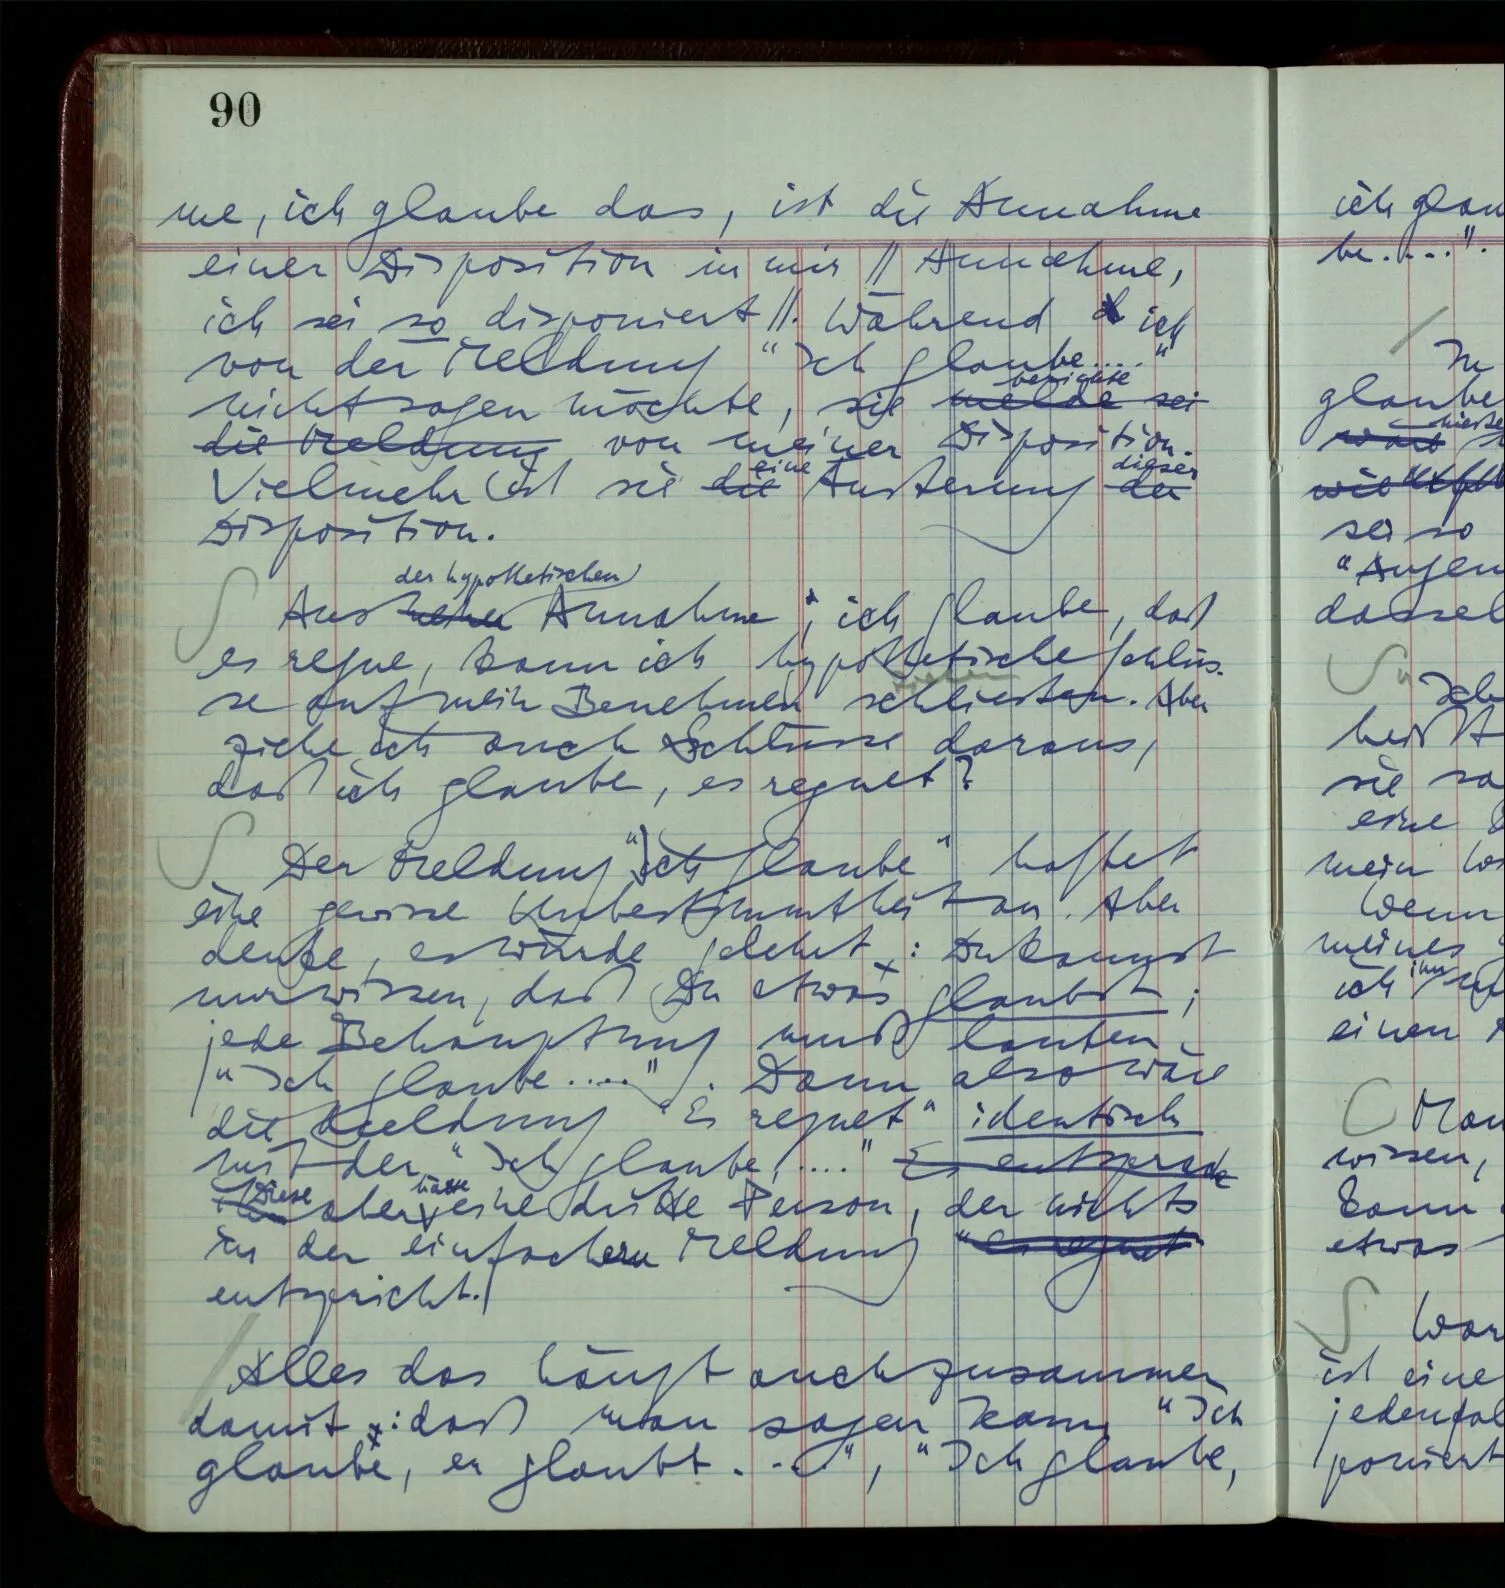 90
me, ich glaube das, ist die Annahme
einer Disposition in mir // Annahme,
ich sei so disponiert //. Während ich
von der Meldung "Ich glaube...."
nicht sagen möchte, sie berichte melde sei
die Meldung von meiner Disposition.
Vielmehr ist sie die eine Äusserung der dieser
Disposition.
der hypothetischen
Aus Annahme, ich glaube, daß
es regne, kann ich hypothetische Schlüs-
se auf mein Benehmen schliesten. Aber
ziehe ich auch Schlüsse daraus,
daß ich glaube, es regnet?
Der Meldung "Ich glaube" haftet
eine gewisse Unbestimmtheit an. Aber
denke, es würde gelehrt: Du kannst
nur wissen, daß Du etwas glaubst;
jede Behauptung muß lauten
"Ich glaube.....". Dann also wäre
die Meldung "Es regnet" identisch
mit der "Ich glaube, ...." Es entspräche
Diese aber hätte eine dritte Person, der nichts
in der einfachern Meldung "es regnet"
entspricht.
Alles das hängt auch zusammen
damit: daß man sagen kann "Ich
glaube, er glaubt...", "Ich glaube,
ich glau
be....".
In
glaube
sei so
"Augen
dassel
"Ich
heißt
sie sa
eine
mein
Wenn
meines
ich ihn
einen
Man
wissen,
kann
etwas
War
ist eine
jedenfal
poniert